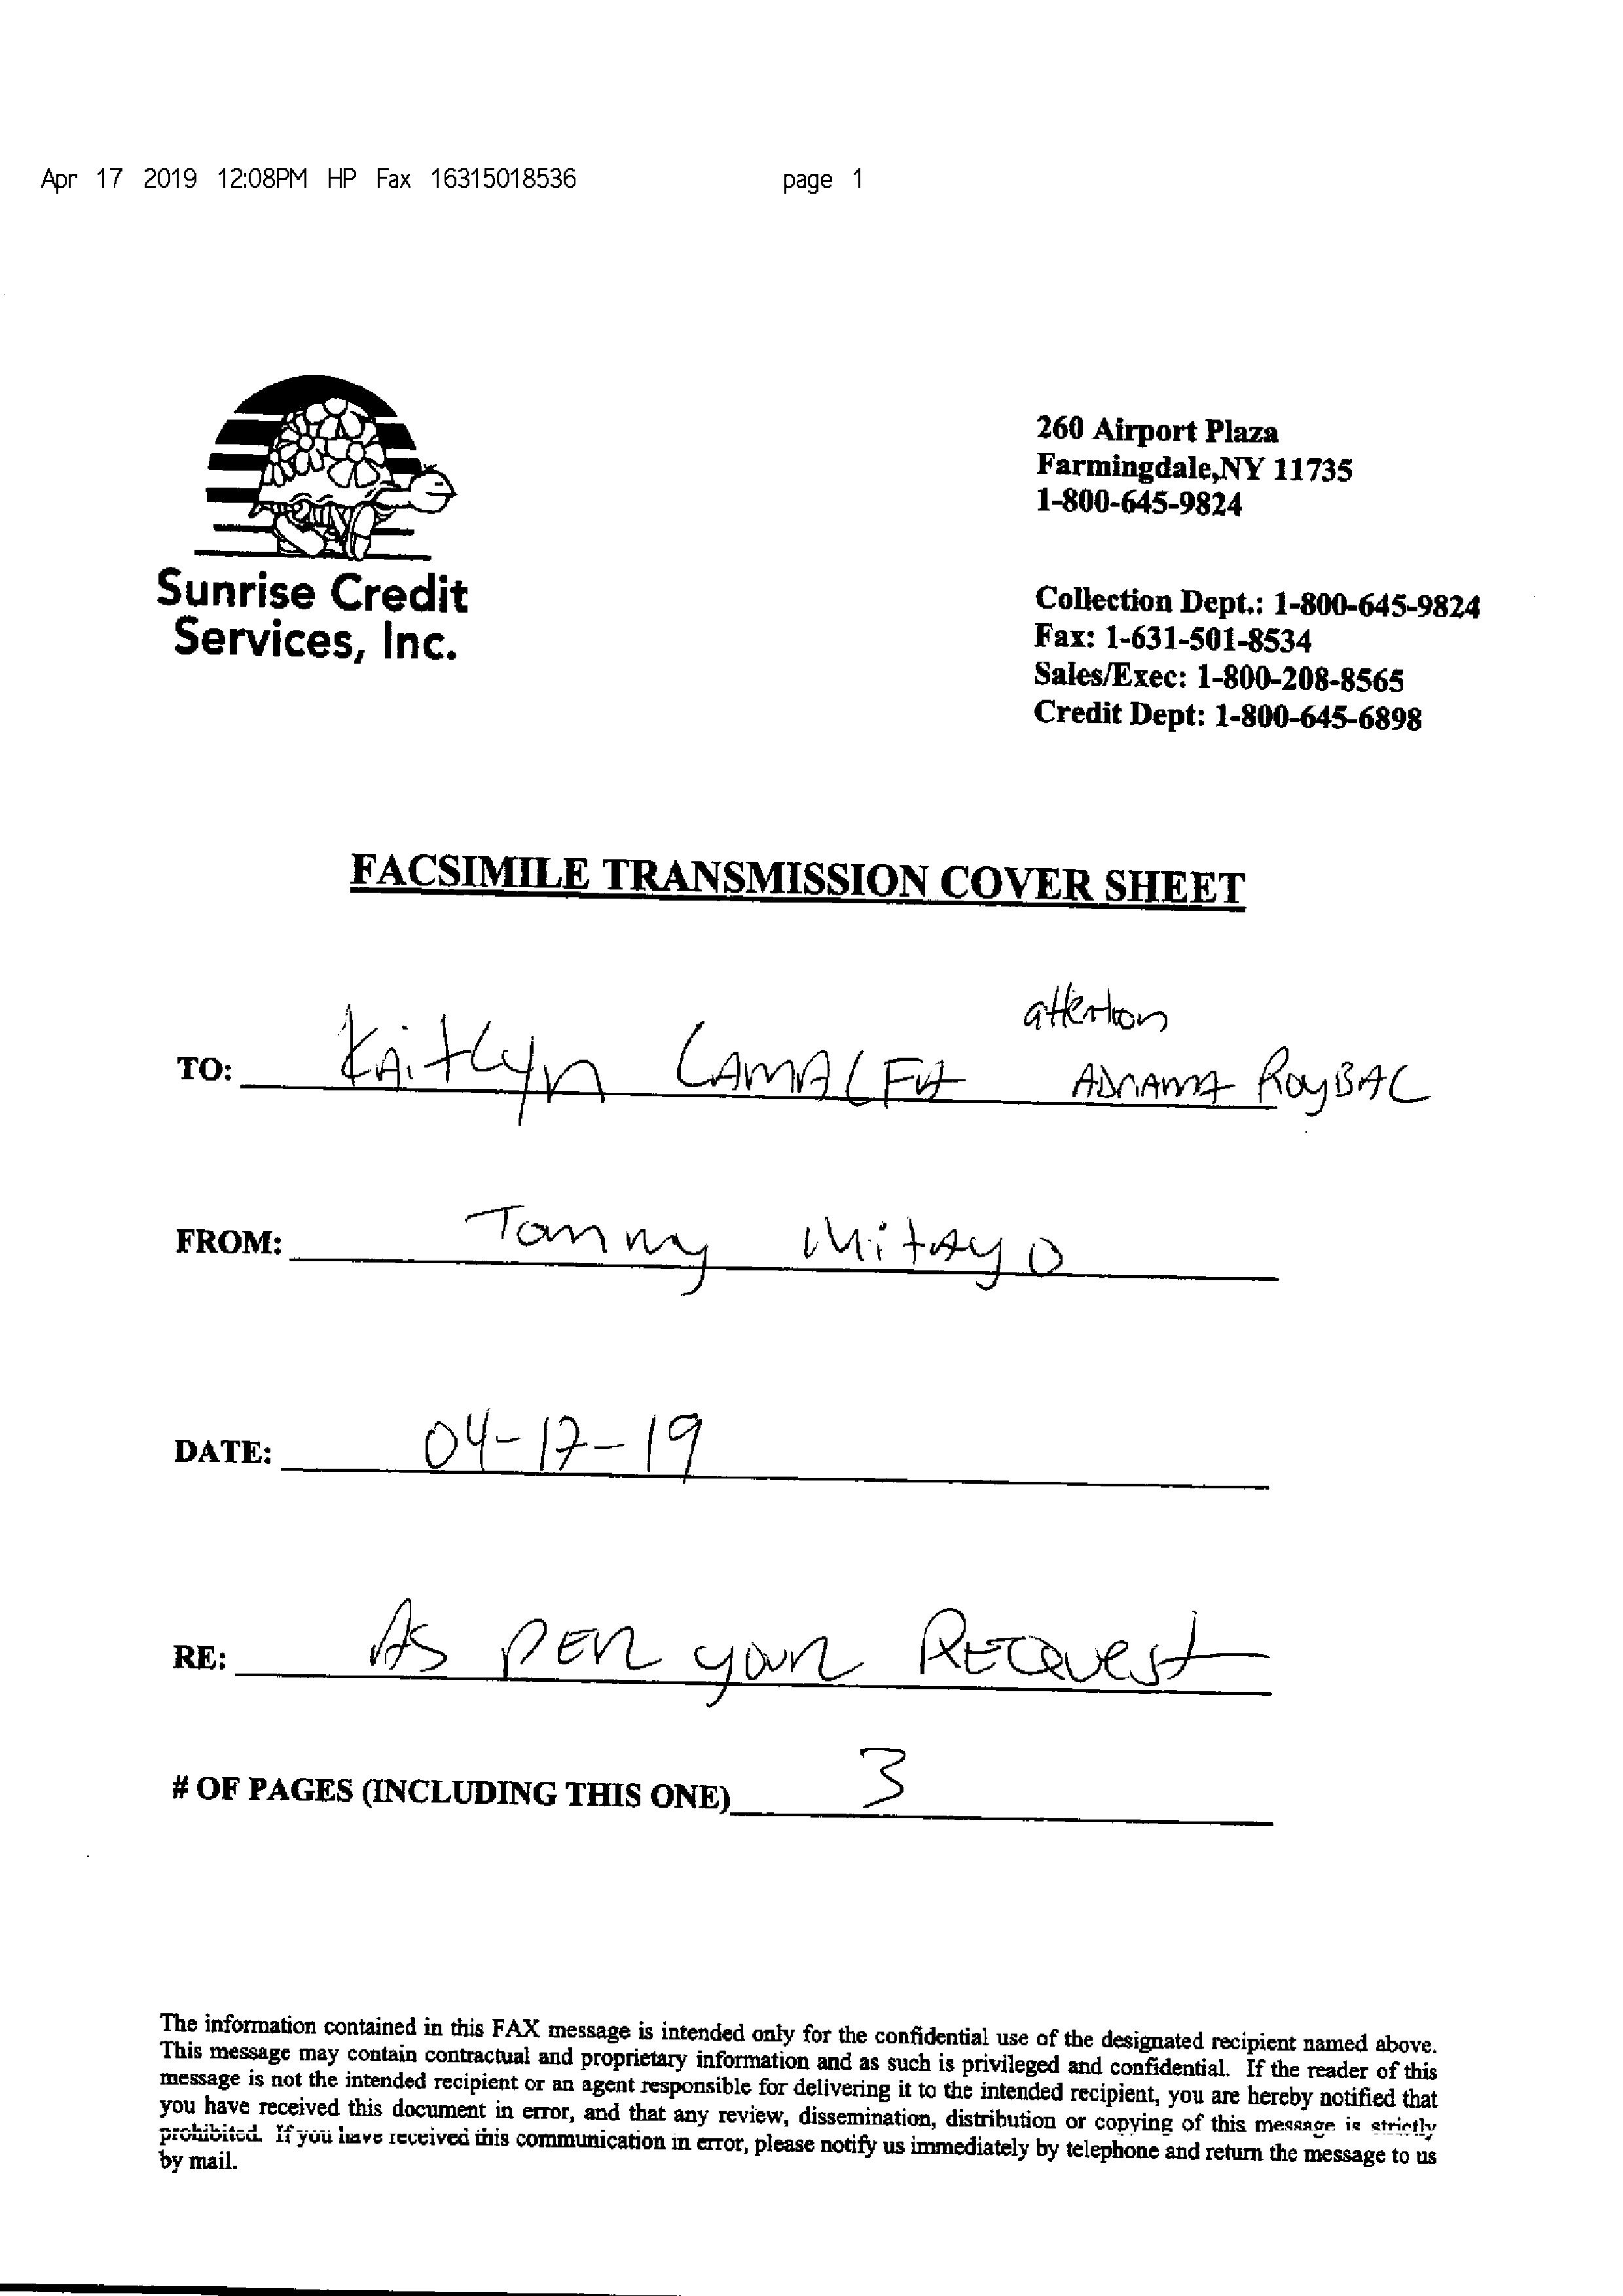 Apr 17 2019 12:08PM HP Fax 16315018536 page 1
260 Airport Plaza
Farmingdale,NY 11735
1-800-645-9824
Sunrise Credit
Services, Inc.
Collection Dept.: 1-800-645-9824
Fax: 1-631-501-8534
Sales/Exec: 1-800-208-8565
Credit Dept: 1-800-645-6898
FACSIMILE TRANSMISSION COVER SHEET
attention
TO: Kaitlyn
FROM: Tammy Mitayo
DATE: 04-17-19
RE: As PER your REQuest
# OF PAGES (INCLUDING THIS ONE) 3
The information contained in this FAX message is intended only for the confidential use of the designated recipient named above.
This message may contain contractual and proprietary information and as such is privileged and confidential. If the reader of this
message is not the intended recipient or an agent responsible for delivering it to the intended recipient, you are hereby notified that
you have received this document in error, and that any review, dissemination, distribution or copying of this message is strictly
prohibited. If you have received this communication in error, please notify us immediately by telephone and return the message to us
by mail.